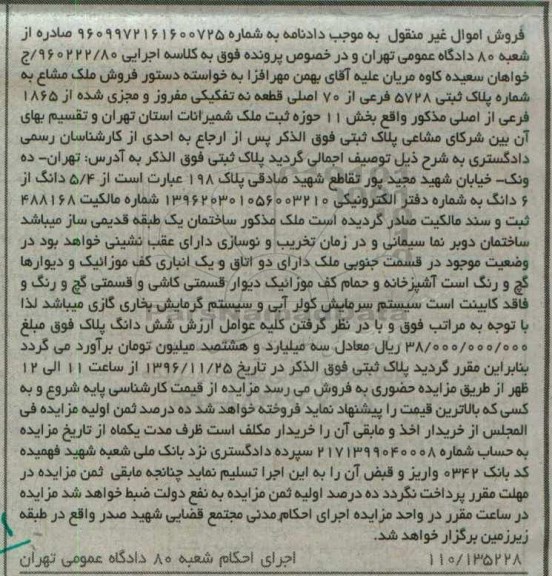 فروش اموال غیر منقول به موجب دادنامه به شماره ۹۶۰۹۹۷۲۱۶۱۶۰۰۷۲۵ صادره از
شعبه ۸۰ دادگاه عمومی تهران و در خصوص پرونده فوق به کلاسه اجرایی ۹۶۰۲۲۲/۸۰/ج
خواهان سعیده کاوه مریان علیه آقای بهمن مهرافزا به خواسته دستور فروش ملک مشاع به
شماره پلاک ثبتی ۵۷۲۸ فرعی از ۷۰ اصلی قطعه نه تفکیکی مفروز و مجزی شده از ۱۸۶۵
فرعی از اصلی مذکور واقع بخش ۱۱ حوزه ثبت ملک شمیرانات استان تهران و تقسیم بهای
آن بین شرکای مشاعی پلاک ثبتی فوق الذکر پس از ارجاع به احدی از کارشناسان رسمی
دادگستری به شرح ذیل توصیف اجمالی گردید پلاک ثبتی فوق الذکر به آدرس: تهران- ده
ونک- خیابان شهید مجید پور تقاطع شهید صادقی پلاک ۱۹۸ عبارت است از ۵/۴ دانگ از
۶ دانگ به شماره دفتر الکترونیکی ۱۳۹۶۲۰۳۰۱۰۵۶۰۰۳۲۱۰ شماره مالکیت ۴۸۸۱۶۸
ثبت و سند مالکیت صادر گردیده است ملک مذکور ساختمان یک طبقه قدیمی ساز میباشد
ساختمان دوبر نما سیمانی و در زمان تخریب و نوسازی دارای عقب نشینی خواهد بود در
وضعیت موجود در قسمت جنوبی ملک دارای دو اتاق و یک انباری کف موزائیک و دیوارها
گچ و رنگ است آشپزخانه و حمام کف موزائیک دیوار قسمتی کاشی و قسمتی گچ و رنگ و
فاقد کابینت است سیستم سرمایش کولر آبی و سیستم گرمایش بخاری گازی میباشد لذا
با توجه به مراتب فوق و با در نظر گرفتن کلیه عوامل ارزش شش دانگ پلاک فوق مبلغ
۳۸/۰۰۰/۰۰۰/۰۰۰ ریال معادل سه میلیارد و هشتصد میلیون تومان برآورد می گردد
بنابراین مقرر گردید پلاک ثبتی فوق الذکر در تاریخ ۱۳۹۶/۱۱/۲۵ از ساعت ۱۱ الی ۱۲
ظهر از طریق مزایده حضوری به فروش می رسد مزایده از قیمت کارشناسی پایه شروع و به
کسی که بالاترین قیمت را پیشنهاد نماید فروخته خواهد شد ده درصد ثمن اولیه مزایده فی
المجلس از خریدار اخذ و مابقی آن را خریدار مکلف است ظرف مدت یکماه از تاریخ مزایده
به حساب شماره ۲۱۷۱۳۹۹۰۴۰۰۰۸ سپرده دادگستری نزد بانک ملی شعبه شهید فهمیده
کد بانک ۰۳۴۲ واریز و قبض آن را به این اجرا تسلیم نماید چنانجه مابقی ثمن مزایده در
مهلت مقرر پرداخت نگردد ده درصد اولیه ثمن مزایده به نفع دولت ضبط خواهد شد مزایده
در ساعت مقرر در واحد مزایده اجرای احکام مدنی مجتمع قضایی شهید صدر واقع در طبقه
زیرزمین برگزار خواهد شد.
۱۱۰/۱۳۵۲۲۸ اجرای احکام شعبه ۸۰ دادگاه عمومی تهران